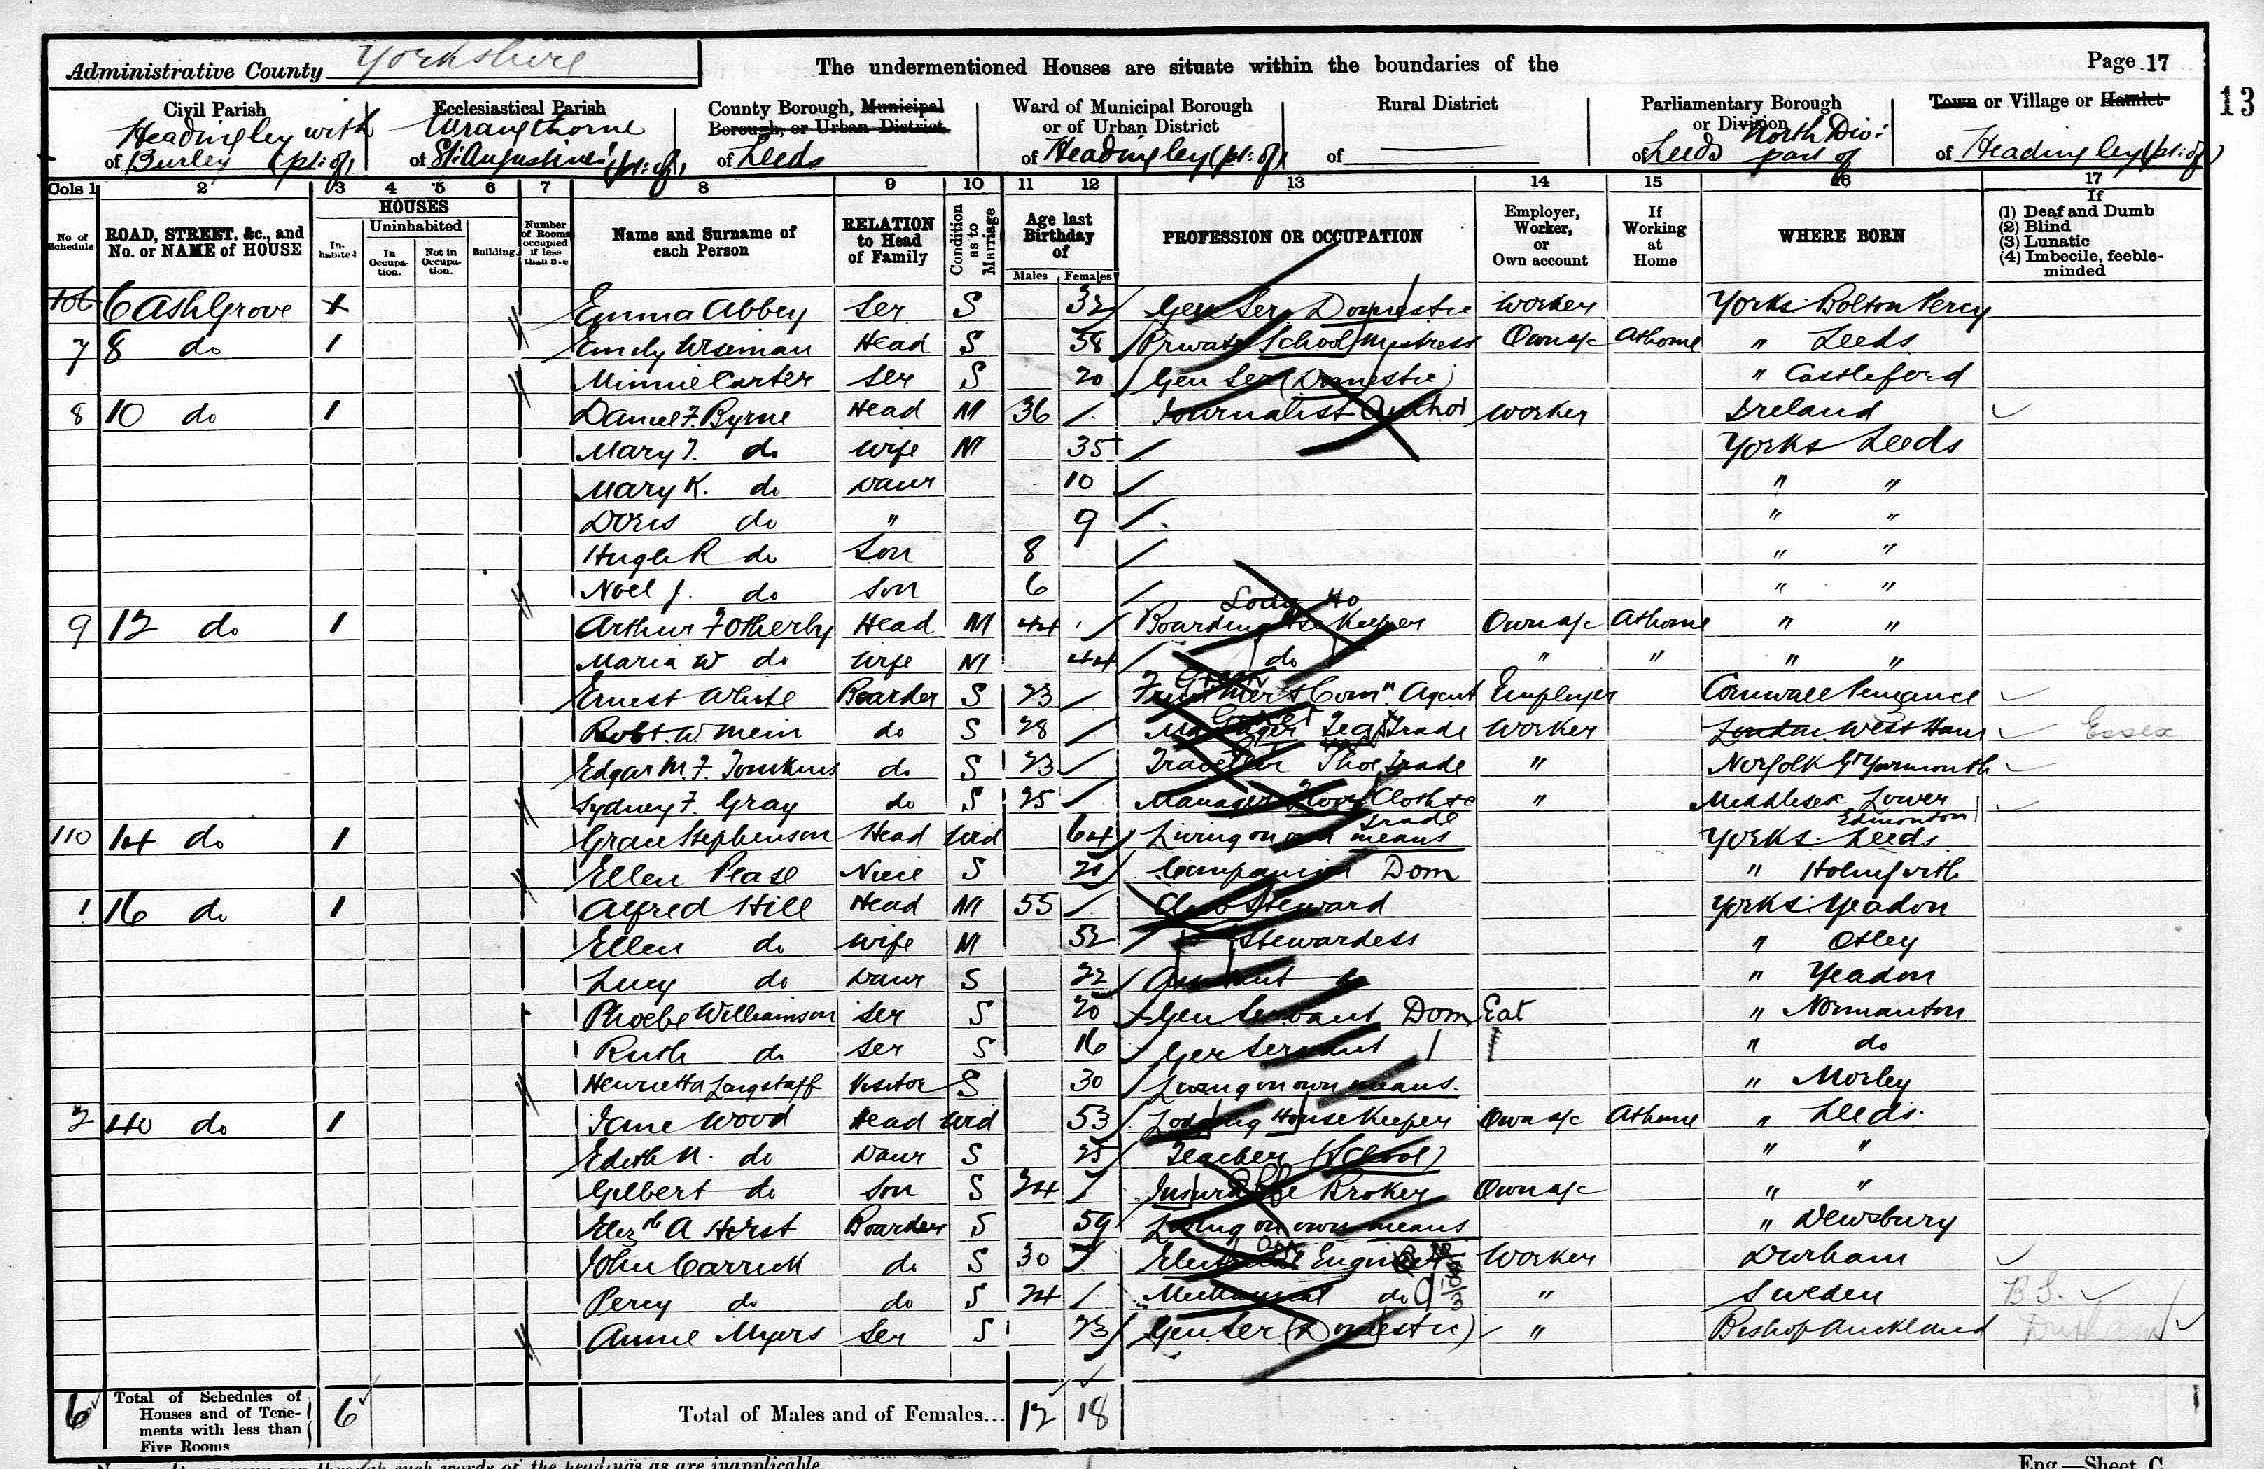 Administrative County Yorkshire
The undermentioned Houses are situate within the boundaries of the
Page 17
13
Civil Parish
Headingley with
of Burley (pt: of)
Ecclesiastical Parish
Wrangthorne
of St: Augustine's (pt: of)
County Borough, Municipal
Borough, or Urban District
of Leeds
Ward of Municipal Borough
or of Urban District
of Headingley (pt: of)
Rural District
of
Parliamentary Borough
or Division
of Leeds North Div:
part of
Town or Village or Hamlet
of Headingley (pt: of)
Cols 1 2 3 4 5 6 7 8 9 10 11 12 13 14 15 16 17
No. of Schedule
ROAD, STREET, &c., and No. or NAME of HOUSE
HOUSES
Inhabited
Uninhabited
In Occupation.
Not in Occupation.
Building
Number of Rooms occupied if less than five
Name and Surname of each Person
RELATION to Head of Family
Condition as to Marriage
Age last Birthday of
Males Females
PROFESSION OR OCCUPATION
Employer, Worker, or Own account
If Working at Home
WHERE BORN
If
(1) Deaf and Dumb
(2) Blind
(3) Lunatic
(4) Imbecile, feeble-minded
106 6 Ash Grove x Emma Abbey Ser S 32 Gen Ser Domestic Worker Yorks Bolton Percy
7 8 do 1 Emily Wiseman Head S 38 Private School Mistress Own a/c At home " Leeds
Minnie Carter Ser S 20 Gen Ser (Domestic) " Castleford
8 10 do 1 Daniel F. Byrne Head M 36 Journalist Author Worker Ireland
Mary T. do Wife M 35 Yorks Leeds
Mary K. do Daur 10 " "
Doris do " 9 " "
Hugh R do Son 8 " "
Noel J. do Son 6 " "
9 12 do 1 Arthur Fotherby Head M 44 Boarding Hse Keeper Own a/c At home " "
Maria W do Wife M 44 do " " " "
Ernest White Boarder S 23 Fruit Mer & Comn Agent Employer Cornwall Penzance
Robt. W. Mein do S 28 Manager Tea Trade Worker London West Ham Essex
Edgar M. F. Tomkins do S 23 Traveller Shoe Trade " Norfolk Gt Yarmouth
Sydney F. Gray do S 25 Manager Floor Cloth &c Trade " Middlesex Lower Edmonton
110 14 do 1 Grace Stephenson Head Wid 64 Living on own means Yorks Leeds
Ellen Pease Niece S Companion Dom " Holmfirth
1 16 do 1 Alfred Hill Head M 55 Club Steward Yorks Yeadon
Ellen do Wife M 52 Stewardess " Otley
Lucy do Daur S 22 Assistant " Yeadon
Phoebe Williamson Ser S 20 Gen Servant Dom " Normanton
Ruth do Ser S 16 Gen Servant " do
Henrietta Langstaff Visitor S 30 Living on own means. " Morley
2 40 do 1 Jane Wood Head Wid 53 Lodging House Keeper Own a/c At home " Leeds
Edith M. do Daur S 25 Teacher (School) " "
Gilbert do Son S 24 Insurance Broker Own a/c " "
Elizth A Hirst Boarder S 59 Living on own means " Dewsbury
John Carrick do S 30 Electrical Engineer Worker Durham
Percy do do S 24 Mechanical do " Sweden B S.
Annie Myers Ser S 23 Gen Ser (Domestic) " Bishop Auckland
6 Total of Schedules of Houses and of Tenements with less than Five Rooms 6 Total of Males and of Females... 12 18
Eng.—Sheet C.